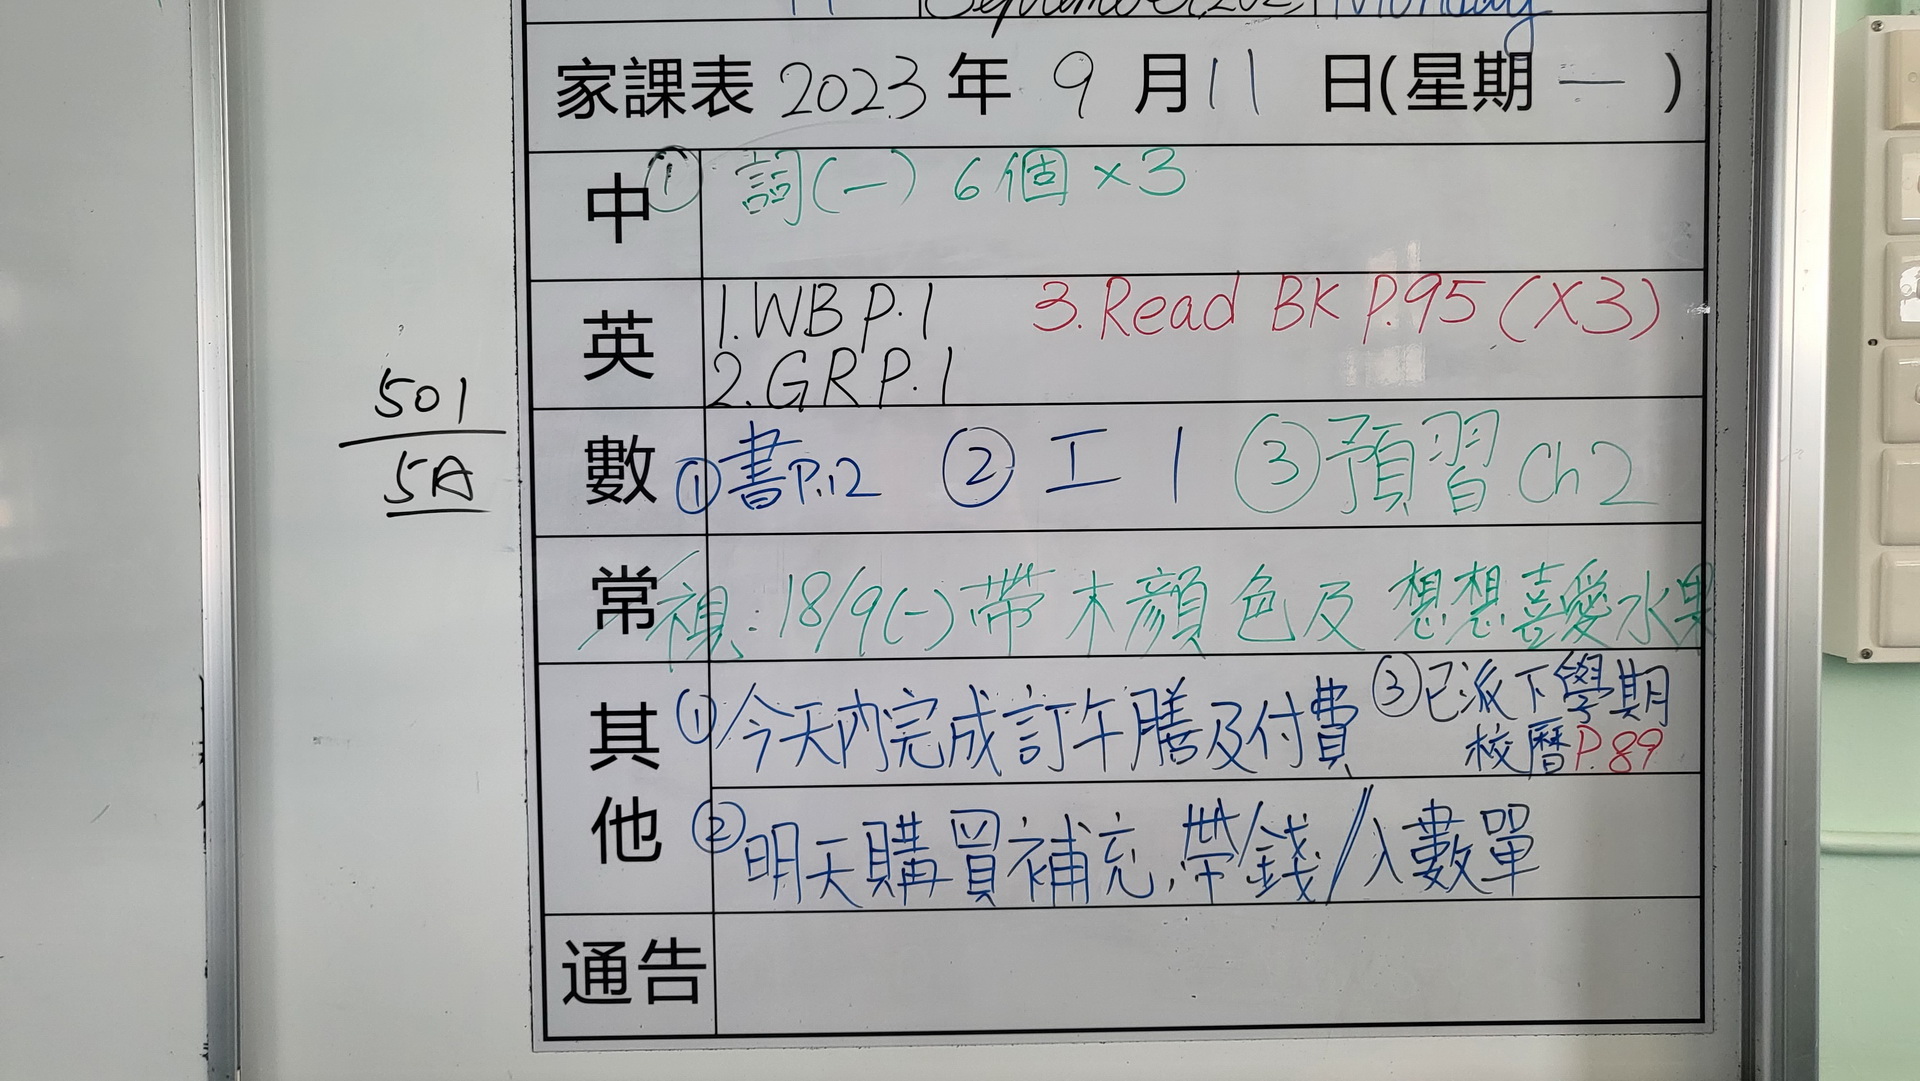 September 2023 Monday
家課表 2023 年 9 月 11 日(星期 一 )
中 ① 詞(一) 6個 ×3
英 1.WB P.1 3.Read BK P.95 (×3)
2.GR P.1
501
5A
數 ① 書P.12 ② 工 1 ③ 預習 Ch 2
常 視: 18/9(一)帶木顏色及想想喜愛水果
其他
① 今天內完成訂午膳及付費 ③ 已派下學期
校曆P.89
② 明天購買補充,帶錢//入數單
通告